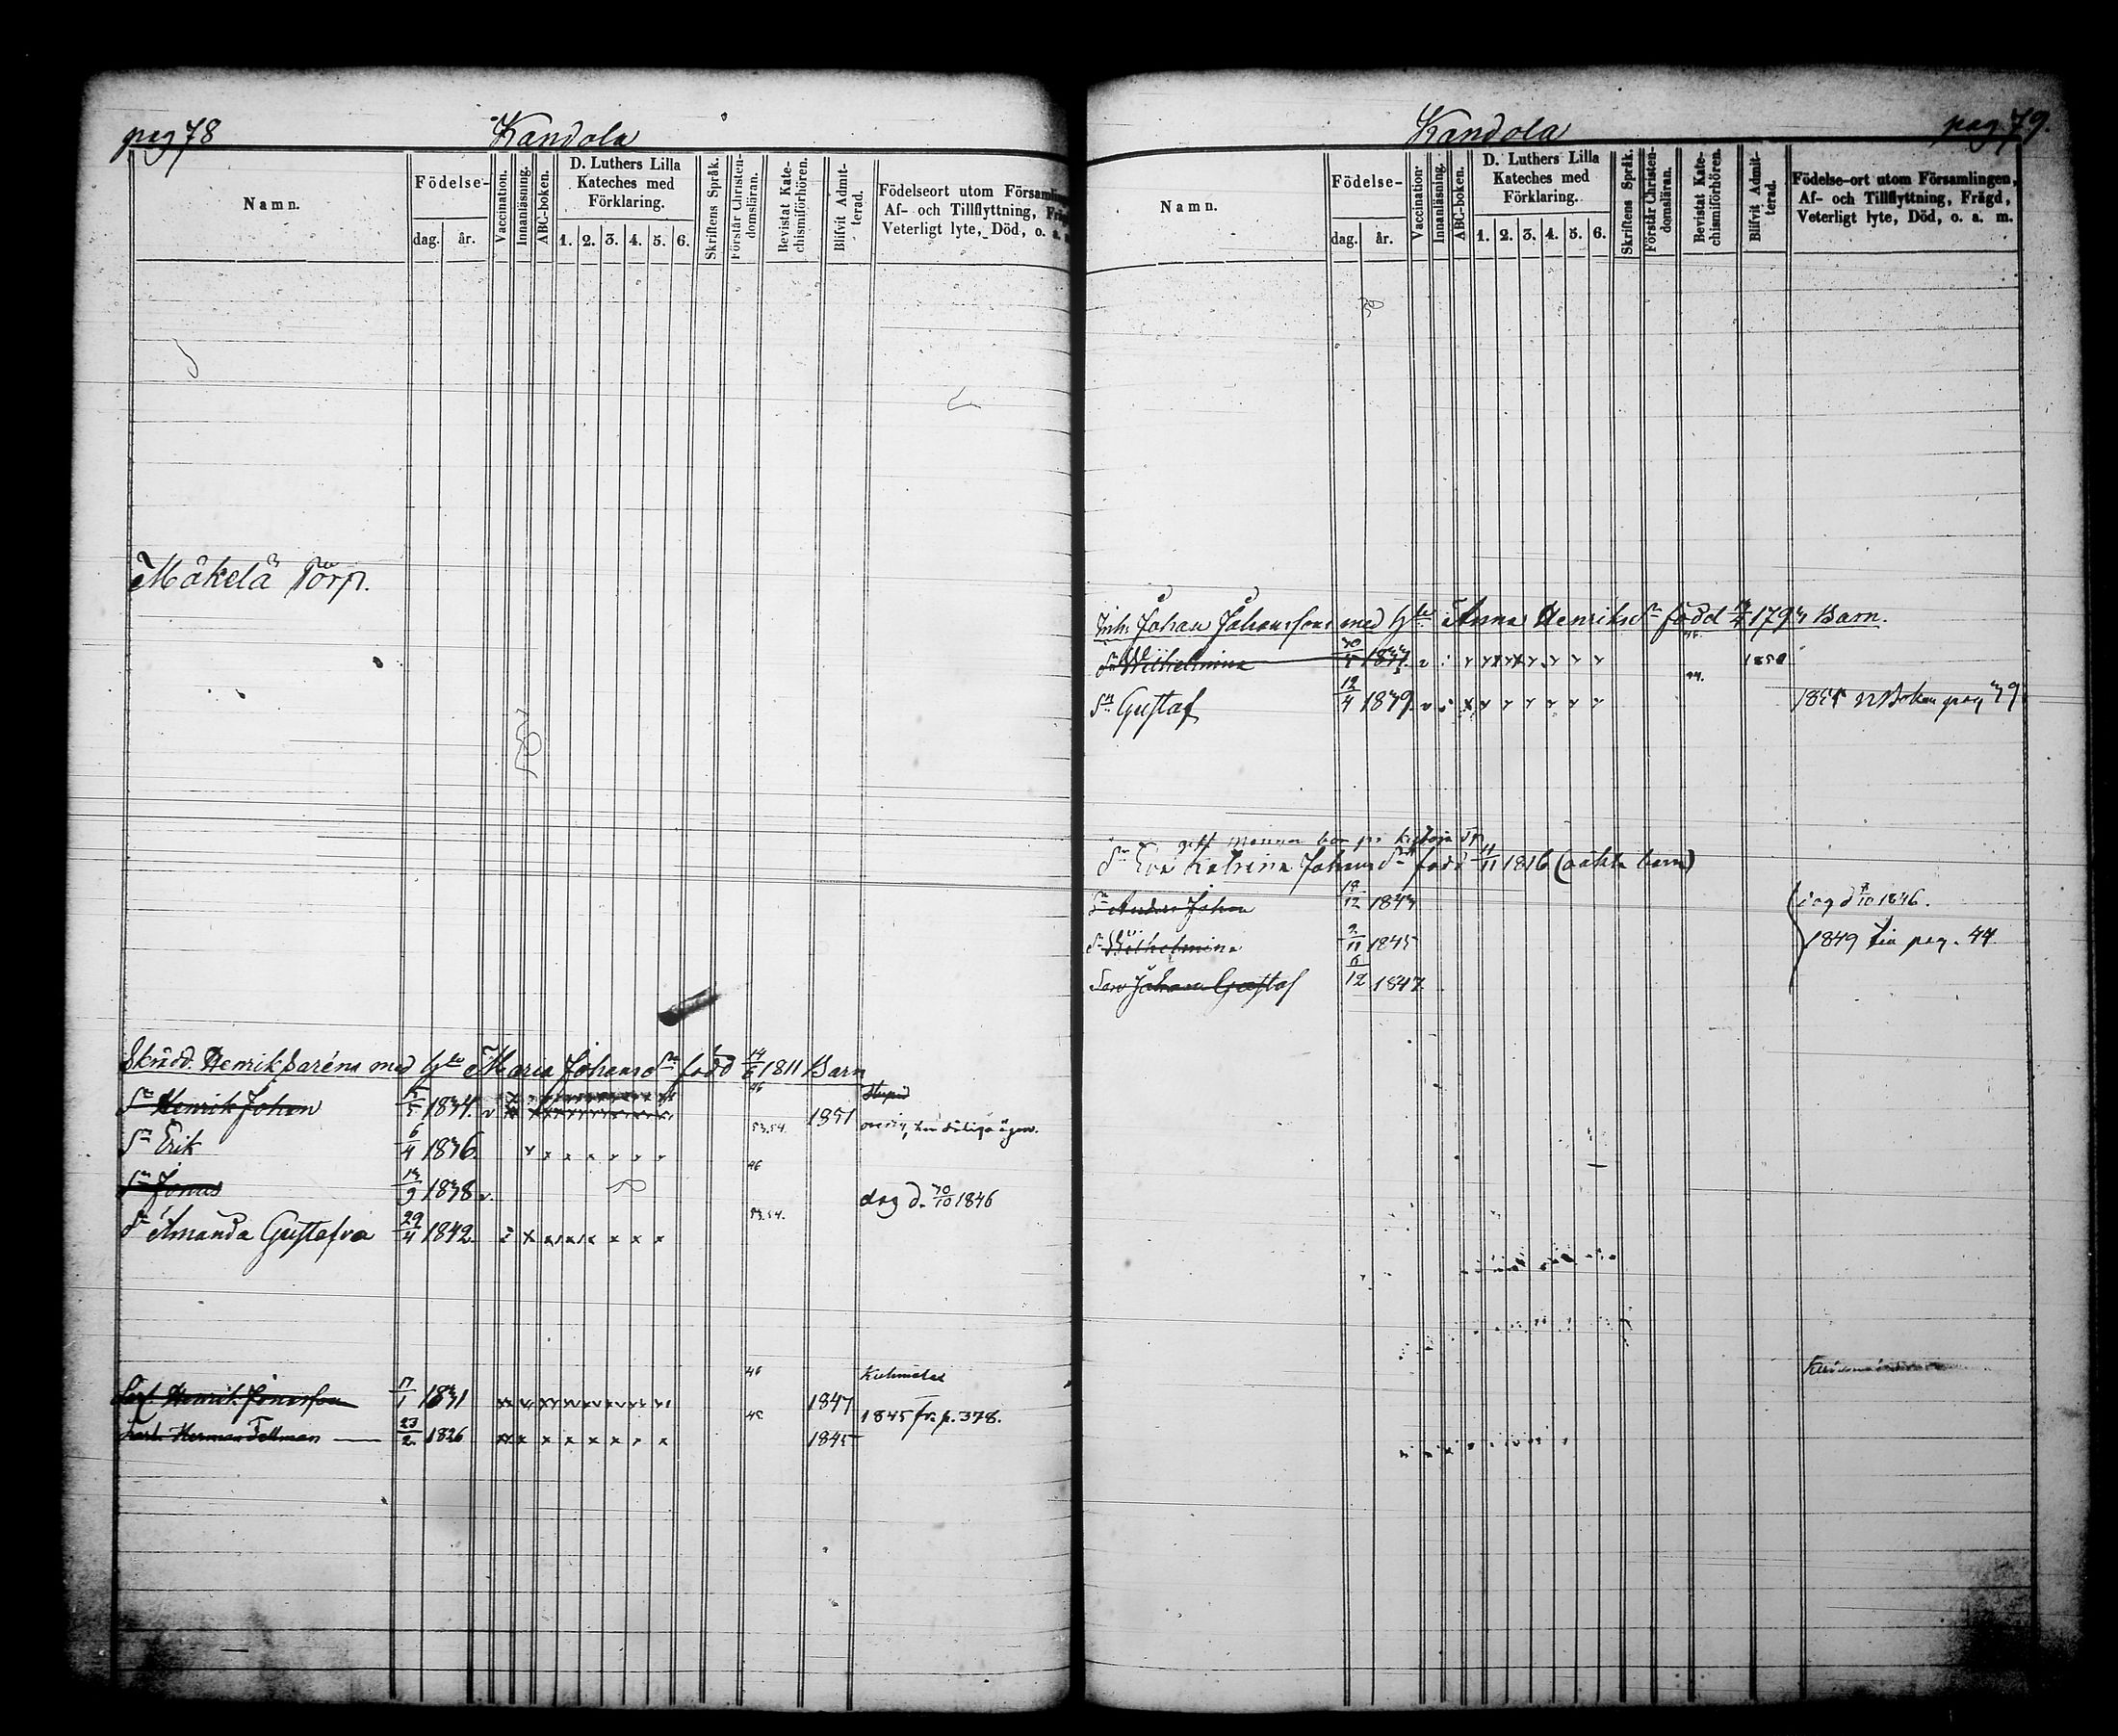 pag 78
Kandola
Namn.
Födelse-
dag.
år.
Vaccination.
Innanläsning.
ABC-boken.
D. Luthers Lilla
Kateches med
Förklaring.
1. 2. 3. 4. 5. 6.
Skriftens Språk.
Förstår Christen-
domsläran.
Bevistat Kate-
chismiförhören.
Blifvit Admit-
terad.
Födelseort utom Församling
Af- och Tillflyttning,
Veterligt lyte, Död, o. a.
Mäkelä Torp.
Skrädd. Henrik Saréns med h Maria Johans dr född 14/6 1811 Barn
46
Sn Henrik Johan 5 1834. v 1851
53.54.
Sn Erik 6/4 1836
46
Sn Jonas 13/9 1838 v. dog d. 30/10 1846
53.54.
dr Amanda Gustafva 29/4 1842
46
Henrik Jonasson 1 1831 1847
45 1845 fr. p. 378.
Herman Tallman 23/2 1826 1845
Kandola
pag 79.
Namn.
Födelse-
dag.
år.
Vaccination.
Innanläsning.
ABC-boken.
D. Luthers Lilla
Kateches med
Förklaring.
1. 2. 3. 4. 5. 6.
Skriftens Språk.
Förstår Christen-
domsläran.
Bevistat Kate-
chismiförhören.
Blifvit Admit-
terad.
Födelse-ort utom Församlingen,
Af- och Tillflyttning, Frägd,
Veterligt lyte, Död, o. a. m.
Inh. Johan Johansson med h Anna Henriks dr född 1793 Barn.
dr Wilhelmina 1850
Sn Gustaf 12/4 1839 Boken pag 79
gift mannen bor på
dr Eva Katrina Johans dr född 11/11 1816 (oäkta barn)
Sn Anders Johan 12 1843 dog d 10 1846.
dr Wilhelmina 2/11 1845 1849 till pag. 44
Son Johan Gustaf 6/12 1847